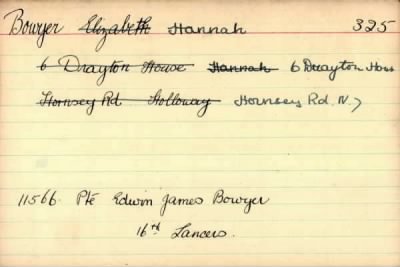 Bowyer Elizabeth Hannah 325
6 Drayton House Hannah 6 Drayton Hous
Hornsey Rd Holloway Hornsey Rd. N. 7
11566. Pte Edwin James Bowyer
16th Lancers.